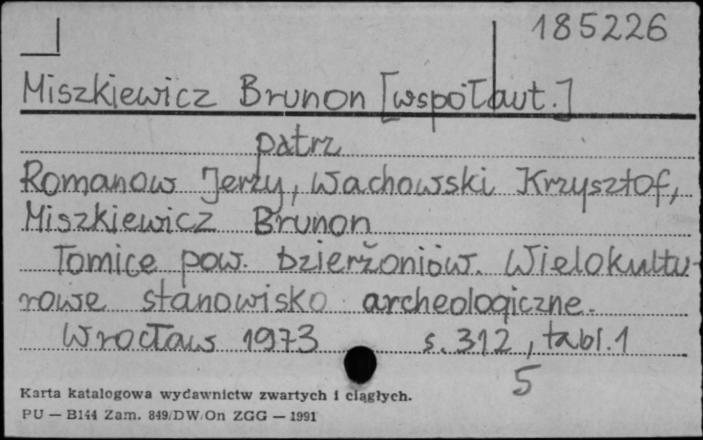 185226
Miszkiewicz Brunon [współaut.]
patrz
Romanow Jerzy, Wachowski Krzysztof,
Miszkiewicz Brunon
Tomice pow. Dzierżoniów. Wielokultu-
rowe stanowisko archeologiczne.
Wrocław 1973 s. 312, tabl. 1
5
Karta katalogowa wydawnictw zwartych i ciągłych.
PU — B144 Zam. 849/DW/On ZGG — 1991